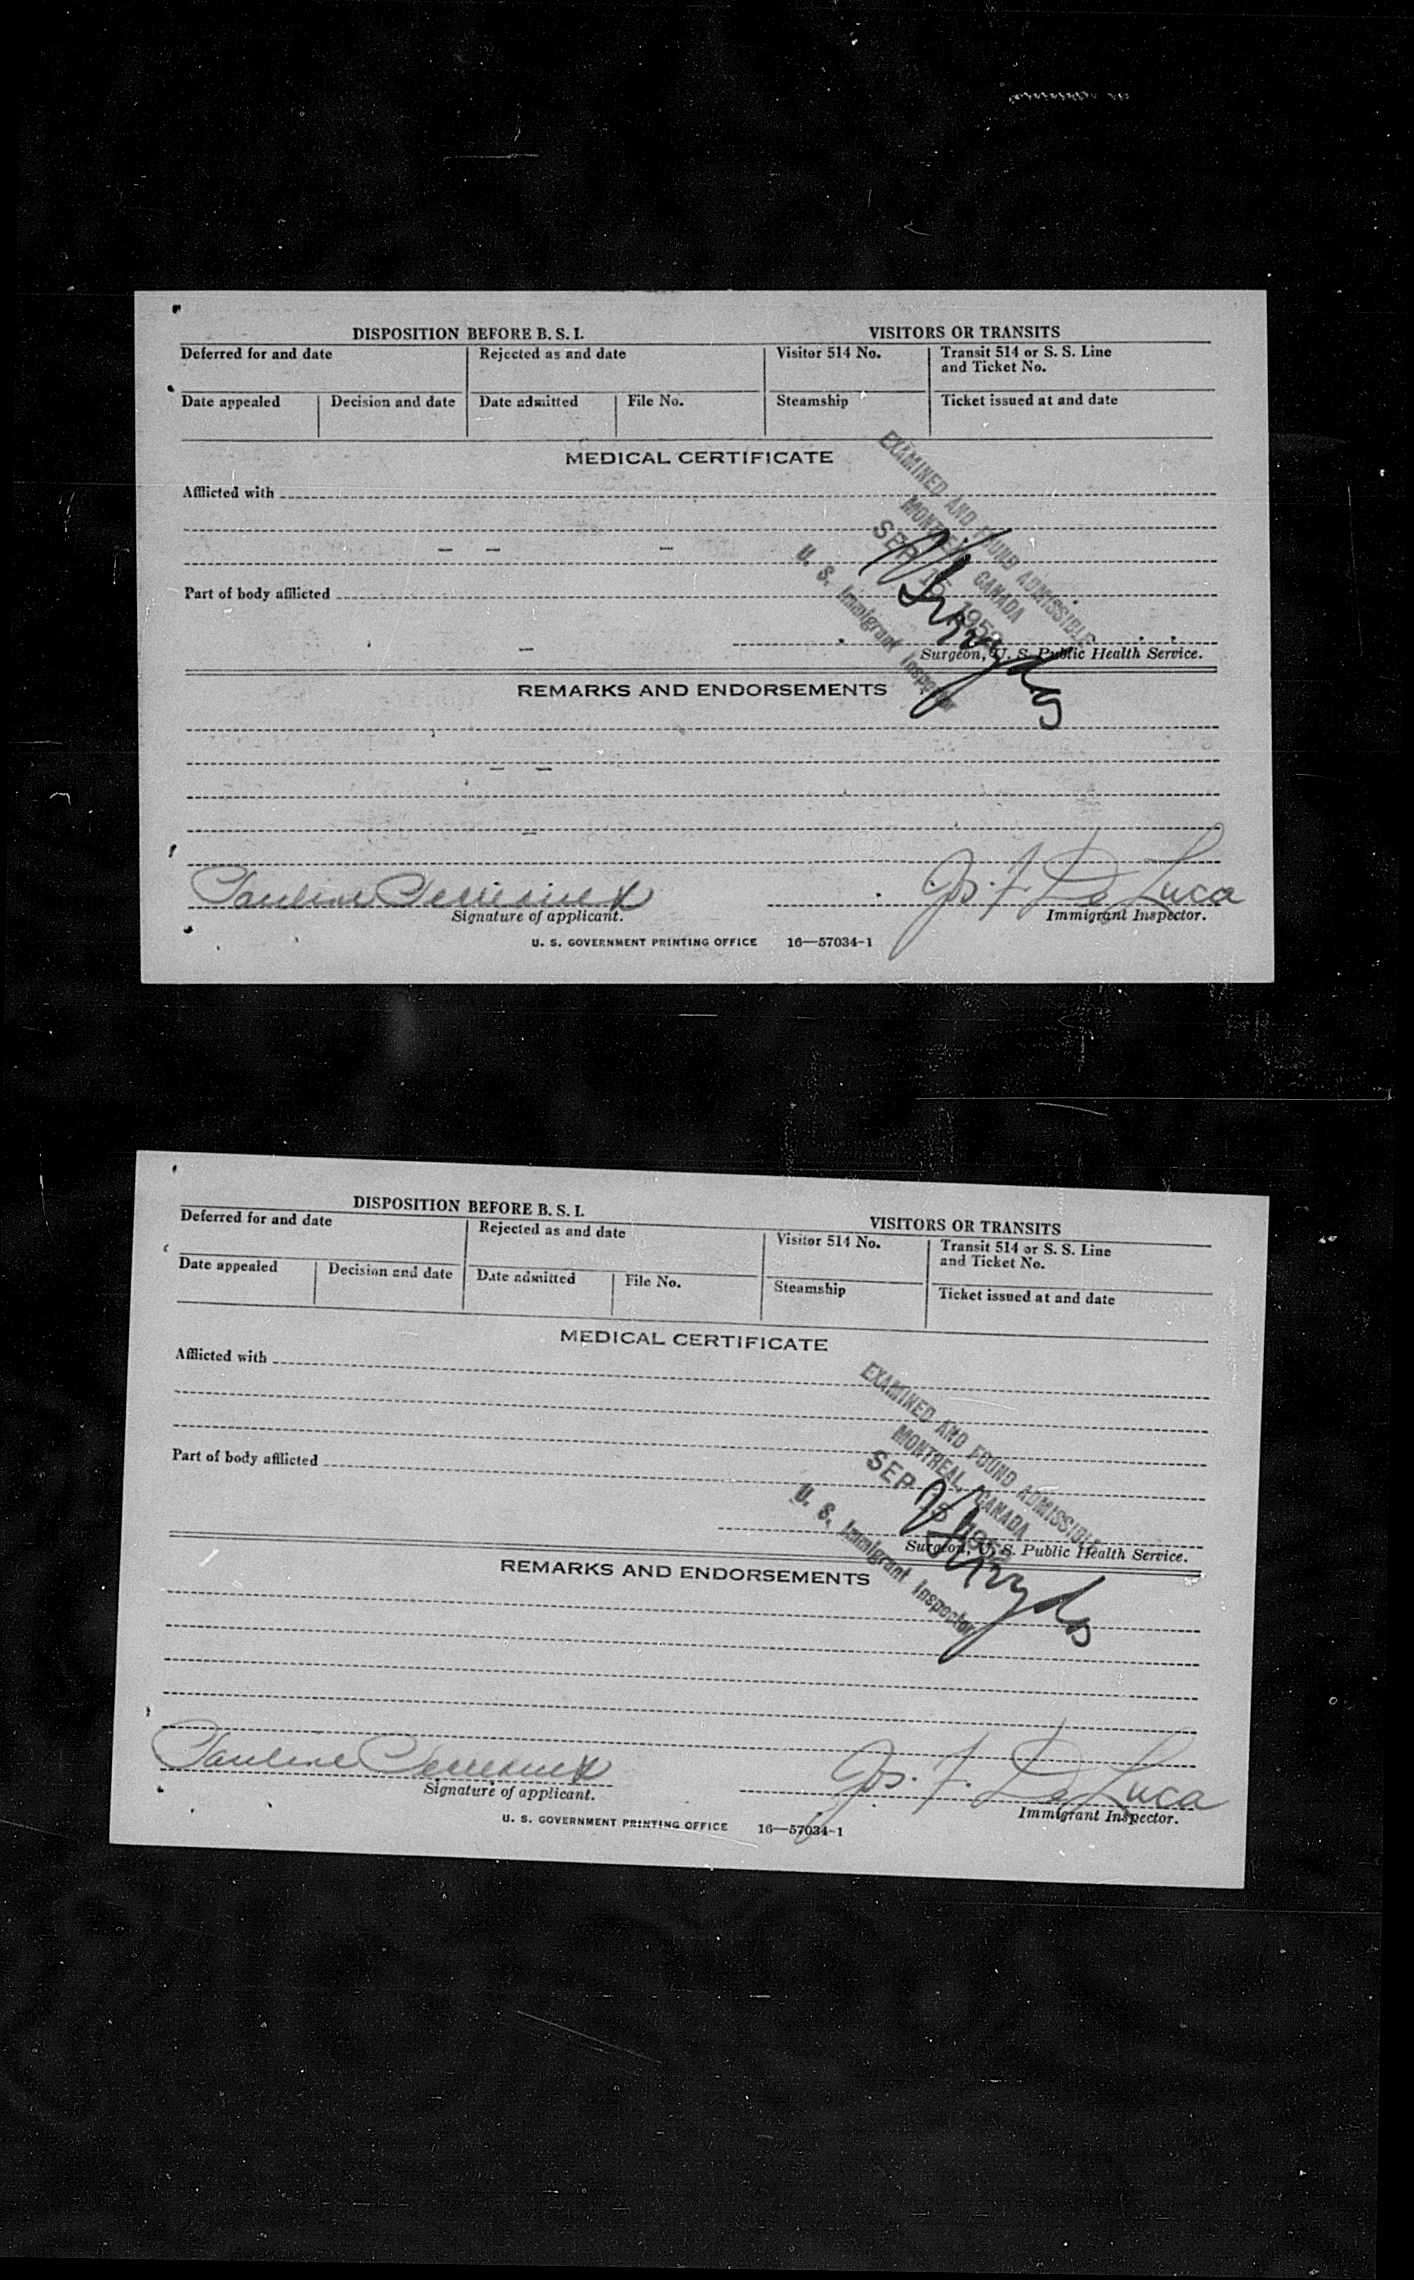 DISPOSITION BEFORE B. S. I.
VISITORS OR TRANSITS
Deferred for and date
Rejected as and date
Visitor 514 No.
Transit 514 or S. S. Line
and Ticket No.
Date appealed
Decision and date
Date admitted
File No.
Steamship
Ticket issued at and date
MEDICAL CERTIFICATE
Afflicted with
EXAMINED AND FOUND ADMISSIBLE
MONTREAL, CANADA
SEP 15
U. S. Immigrant Inspector
Part of body afflicted
Surgeon, U. S. Public Health Service.
REMARKS AND ENDORSEMENTS
Pauline
Jos. F. De Luca
Signature of applicant.
Immigrant Inspector.
U. S. GOVERNMENT PRINTING OFFICE 16—57034-1
DISPOSITION BEFORE B. S. I.
VISITORS OR TRANSITS
Deferred for and date
Rejected as and date
Visitor 514 No.
Transit 514 or S. S. Line
and Ticket No.
Date appealed
Decision and date
Date admitted
File No.
Steamship
Ticket issued at and date
MEDICAL CERTIFICATE
Afflicted with
EXAMINED AND FOUND ADMISSIBLE
MONTREAL, CANADA
SEP 15
U. S. Immigrant Inspector
Part of body afflicted
Surgeon, U. S. Public Health Service.
REMARKS AND ENDORSEMENTS
Pauline
Jos. F. De Luca
Signature of applicant.
Immigrant Inspector.
U. S. GOVERNMENT PRINTING OFFICE 16—57034-1